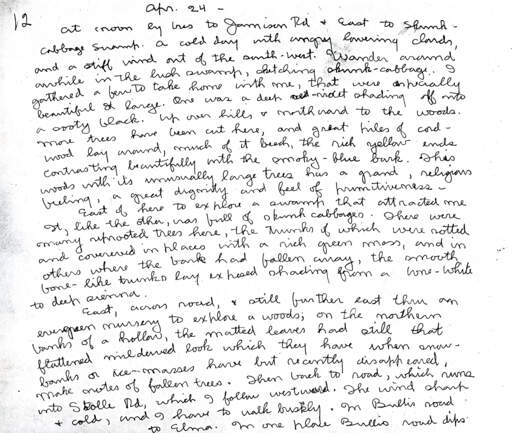 12
Apr. 24 -
At noon by bus to Jamison Rd & East to Skunk-
cabbage Swamp. A cold day with angry lowering clouds,
and a stiff wind out of the south-west. Wander around
awhile in the lush swamp, sketching skunk-cabbage. I
gathered a few to take home with me, that were especially
beautiful & large. One was a deep red-violet shading off into
a sooty black. Up over hills & northward to the woods.
More trees have been cut here, and great piles of cord-
wood lay around, much of it beech, the rich yellow ends
contrasting beautifully with the smoky-blue bark. This
woods with its unusually large trees has a grand, religious
feeling, a great dignity and feel of primitiveness -
East of here to explore a swamp that attracted me
It, like the other, was full of skunk cabbages. There were
many uprooted trees here, the trunks of which were rotted
and covered in places with a rich green moss, and in
others where the bark had fallen away, the smooth
bone-like trunks lay exposed shading from a bone-white
to deep sienna.
East, across road, & still further east thru an
evergreen nursery to explore a woods; on the northern
banks of a hollow, the matted leaves had still that
flattened mildewed look which they have when snow-
banks or ice-masses have but recently disappeared.
Make notes of fallen trees. Then back to road, which runs
into Stolle Rd, which I follow westward. The wind sharp
& cold, and I have to walk briskly. On Bullis road
to Elma. In one place Bullis road dips